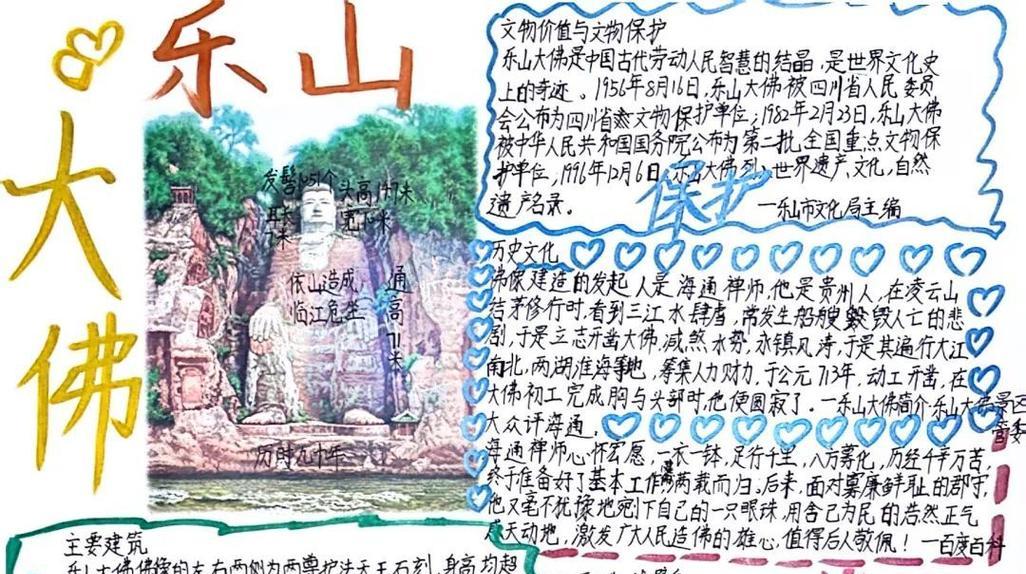 乐山
大佛
发髻1051个
头高14.7米
耳长
米
宽10米
依山造成，
临江危坐
通高71米
历时九十年
文物价值与文物保护
乐山大佛是中国古代劳动人民智慧的结晶，是世界文化史
上的奇迹。1956年8月16日，乐山大佛被四川省人民委员
会公布为四川省级文物保护单位；1982年2月23日，乐山大佛
被中华人民共和国国务院公布为第二批全国重点文物保
护单位；1996年12月6日，乐山大佛列入世界遗产，文化，自然
遗产名录。
保护
一乐山市文化局主编
历史文化
佛像建造的发起人是海通禅师，他是贵州人，在凌云山
结茅修行时，看到三江水肆虐，常发生船艘毁人亡的悲
剧，于是立志开凿大佛，减煞水势，永镇风涛，于是其遍行大江
南北，两湖淮海等地，筹集人力财力，于公元713年，动工开凿，在
大佛初工完成胸与头部时，他便圆寂了。一乐山大佛简介乐山大佛景区
管委
大众评海通，
海通禅师心怀宏愿，一衣一钵，足行千里，八方募化，历经千辛万苦，
终于准备好了基本工作，满两载而归。后来，面对寡廉鲜耻的郡守，
他又毫不犹豫地剜下自己的一只眼珠，用舍己为民的浩然正气
感天动地，激发广大人民造佛的雄心，值得后人敬佩！一百度百科
主要建筑
乐山大佛佛像的左右两侧为两尊护法天王石刻，身高均超